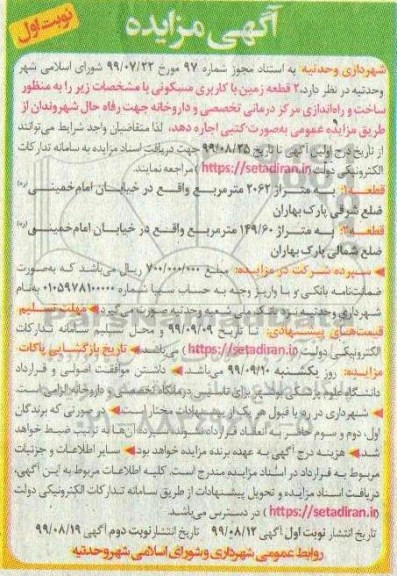 آگهی مزایده
نوبت اول
شهرداری وحدتیه به استناد مجوز شماره ۹۷ مورخ ۹۹/۰۷/۲۲ شورای اسلامی شهر
وحدتیه در نظر دارد، ۲ قطعه زمین با کاربری مسکونی با مشخصات زیر را به منظور
ساخت و راه‌اندازی مرکز درمانی تخصصی و داروخانه جهت رفاه حال شهروندان از
طریق مزایده عمومی به‌صورت کتبی اجاره دهد، لذا متقاضیان واجد شرایط می‌توانند
از تاریخ درج اولین آگهی تا تاریخ ۹۹/۰۸/۲۵ جهت دریافت اسناد مزایده به سامانه تدارکات
الکترونیکی دولت (https://setadiran.ir) مراجعه نمایند.
قطعه۱: به متراژ ۲۰۶۲ مترمربع واقع در خیابان امام‌خمینی(ره)
ضلع شرقی پارک بهاران
قطعه۲: به متراژ ۱۴۹/۶۰ مترمربع واقع در خیابان امام‌خمینی(ره)
ضلع شمالی پارک بهاران
سپرده شرکت در مزایده: مبلغ ۷۰۰/۰۰۰/۰۰۰ ریال می‌باشد که به‌صورت
ضمانت‌نامه بانکی و یا واریز وجه به حساب سیبا شماره ۰۱۰۵۹۷۸۱۰۰۰۰۰ به‌نام
شهرداری وحدتیه نزد بانک ملی شعبه وحدتیه صورت می‌گیرد مهلت تسلیم
قیمت‌های پیشنهادی: تا تاریخ ۹۹/۰۹/۰۹ و محل تسلیم سامانه تدارکات
الکترونیکی دولت (https://setadiran.ir) می‌باشد تاریخ بازگشایی پاکات
مزایده: روز یکشنبه ۹۹/۰۹/۱۰ می‌باشد داشتن موافقت اصولی و قرارداد
دانشگاه علوم پزشکی بوشهر برای تاسیس درمانگاه تخصصی و داروخانه الزامی است
شهرداری در رد یا قبول هر یک از پیشنهادات مختار است در صورتی که برندگان
اول، دوم و سوم حاضر به انعقاد قرارداد نشوند سپرده آن‌ها به ترتیب ضبط خواهد
شد هزینه درج آگهی به عهده برنده مزایده خواهد بود سایر اطلاعات و جزئیات
مربوط به قرارداد در اسناد مزایده مندرج است. کلیه اطلاعات مربوط به این آگهی،
دریافت اسناد مزایده و تحویل پیشنهادات از طریق سامانه تدارکات الکترونیکی دولت
(https://setadiran.ir) در دسترس می‌باشد.
تاریخ انتشار نوبت اول آگهی ۹۹/۰۸/۱۲ تاریخ انتشار نوبت دوم آگهی ۹۹/۰۸/۱۹
روابط عمومی شهرداری و شورای اسلامی شهر وحدتیه